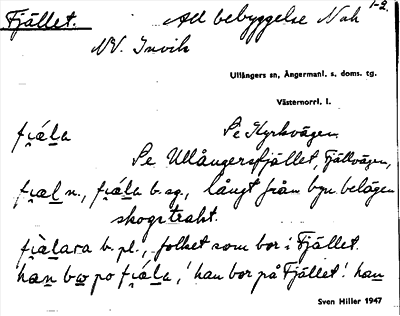 Fjället. All bebyggelse Nah 1-2.
NV. Invik
Ullångers sn, Ångermanl. s. doms. tg.
Västernorrl. l.
fi̯á̤la Se Kyrkvägen
Se Ullångersfjället, Fjällvägen,
fi̯a̤l n., fi̯á̤la b. sg., långt från byn belägen
skogstrakt.
fi̯à̤lara b. pl., folket som bor i Fjället.
han bo po fi̯á̤la, 'han bor på Fjället.' han
Sven Hiller 1947